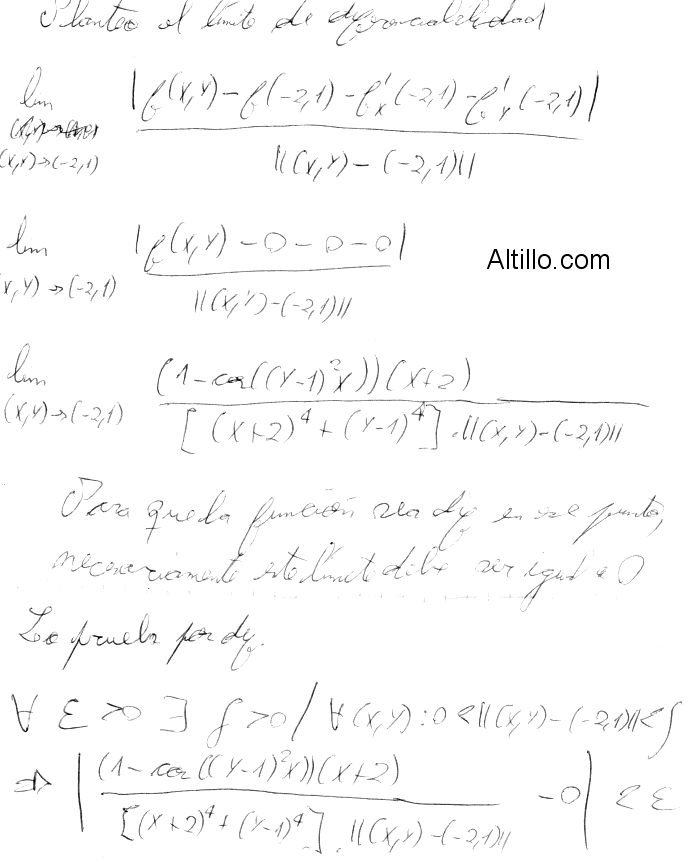 Planteo el límite de diferenciabilidad
lim |f(x,y) - f(-2,1) - f'x(-2,1) - f'y(-2,1)|
(x,y)→(-2,1) ||(x,y) - (-2,1)||
lim |f(x,y) - 0 - 0 - 0|
(x,y)→(-2,1) ||(x,y)-(-2,1)||
Altillo.com
lim (1-cos((y-1)²x))(x+2)
(x,y)→(-2,1) [(x+2)⁴+(y-1)⁴].||(x,y)-(-2,1)||
Para que la función sea dif en ese punto,
necesariamente este límite debe ser igual a 0
Lo pruebo por def.
∀ ε >0 ∃ δ >0 / ∀ (x,y): 0<||(x,y)-(-2,1)||<δ
⇒ | (1-cos((y-1)²x))(x+2) - 0 | < ε
[(x+2)⁴+(y-1)⁴].||(x,y)-(-2,1)||